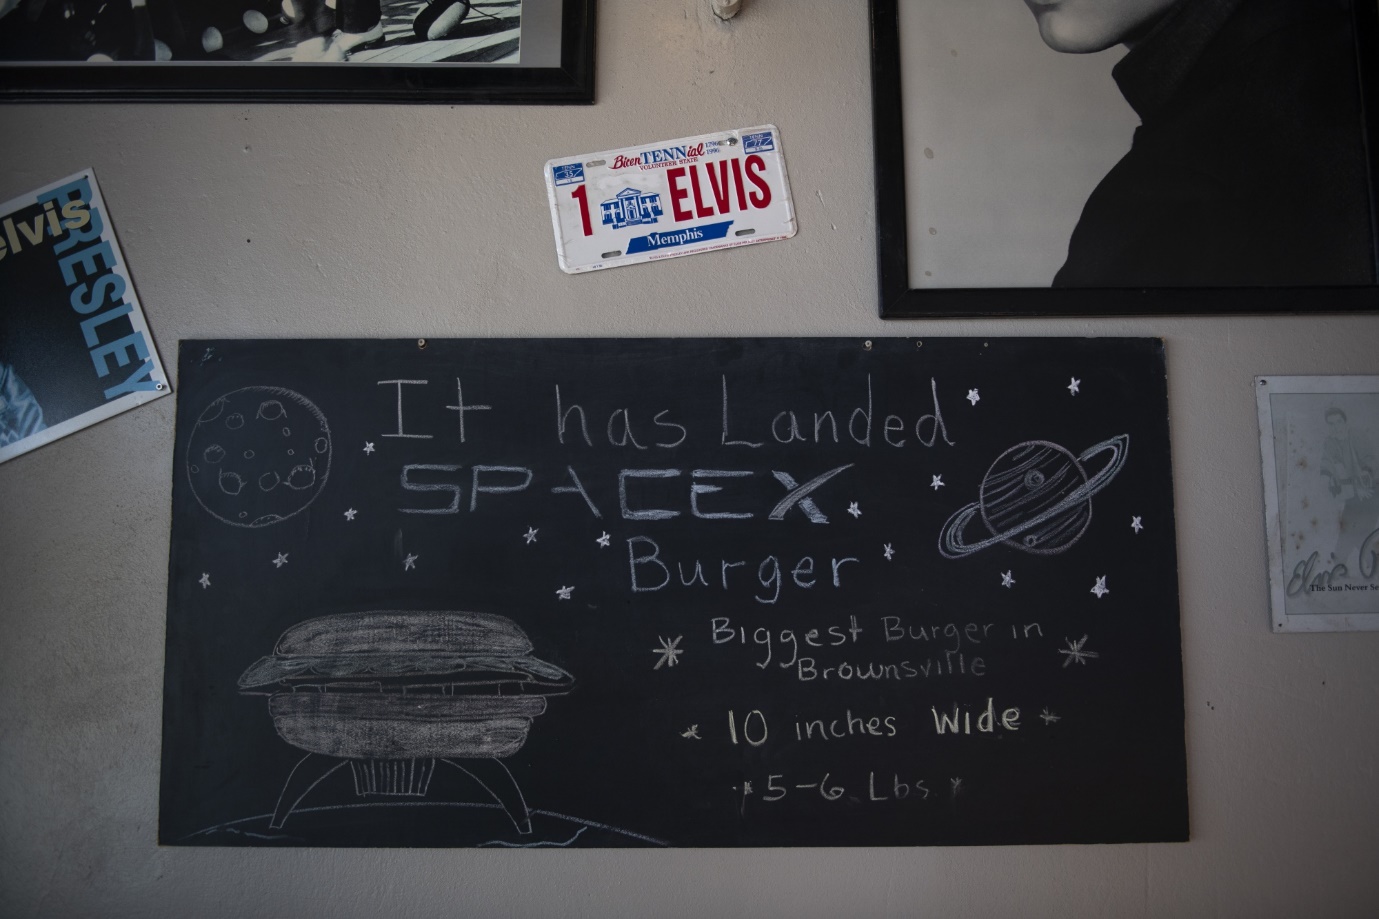 Bicentennial 1796 1996
VOLUNTEER STATE
1 ELVIS
Memphis
elvis
PRESLEY
It has Landed
SPACEX
Burger
Biggest Burger in
Brownsville
10 inches Wide
5-6 Lbs
Elvis
The Sun Never Se